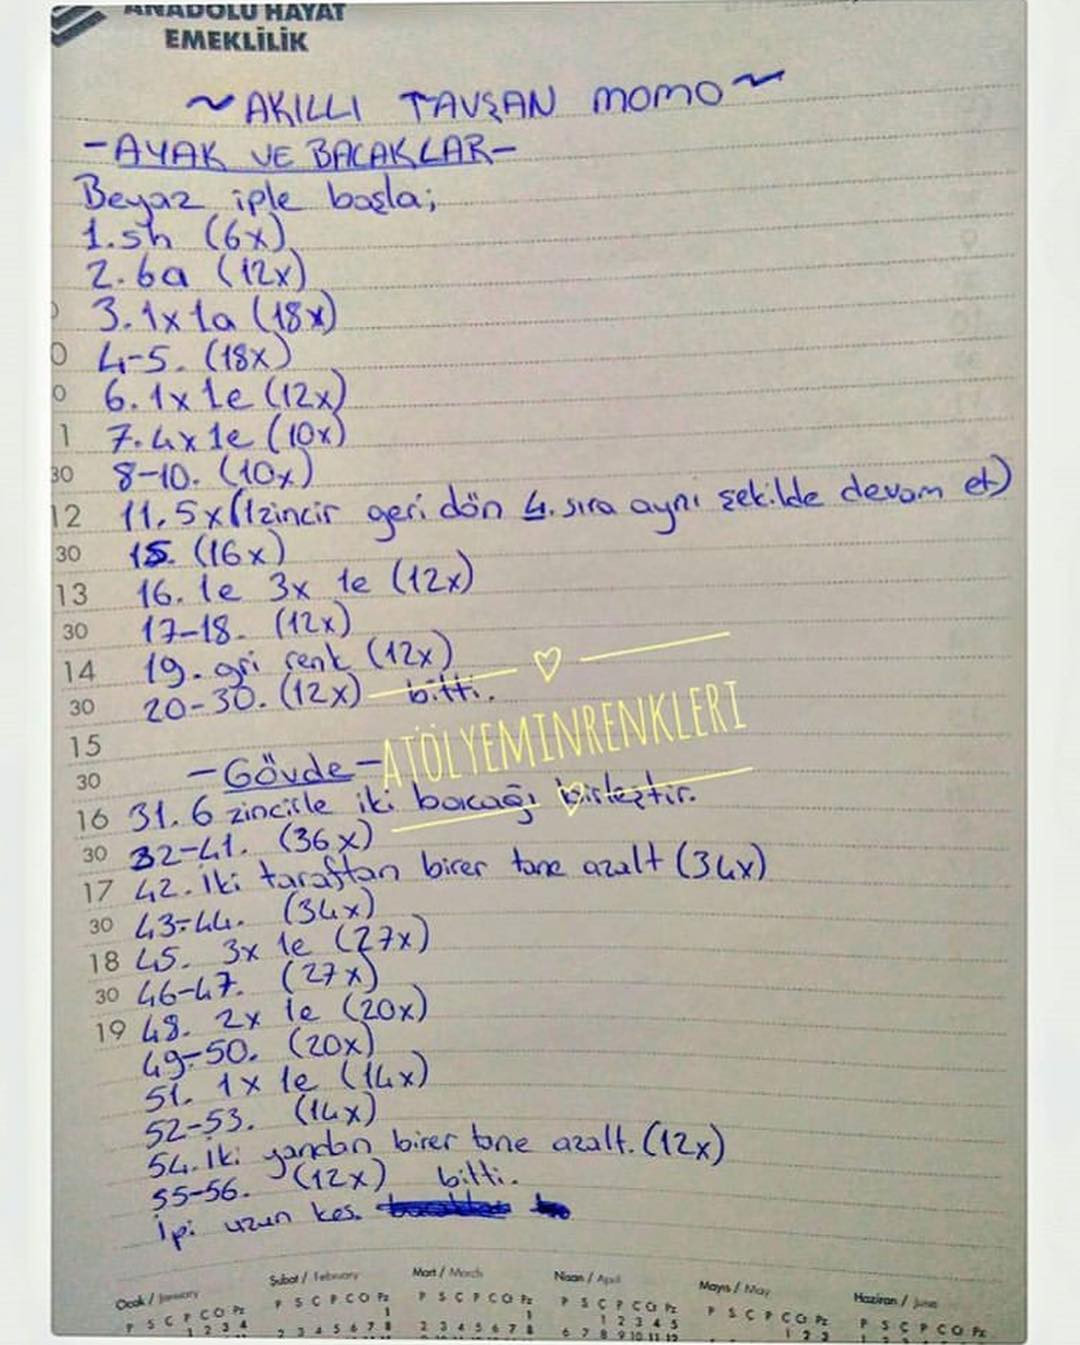 ANADOLU HAYAT
EMEKLİLİK
~AKILLI TAVŞAN momo~
-AYAK VE BACAKLAR-
Beyaz iple başla;
1.sh (6x)
2.6a (12x)
3.1x1a (18x)
4-5. (18x)
6.1x1e (12x)
7.4x1e (10x)
8-10. (10x)
11.5x(1zincir geri dön 4. sıra aynı şekilde devam et)
15. (16x)
16. 1e 3x 1e (12x)
17-18. (12x)
19. gri renk (12x)
20-30. (12x) bitti.
-Gövde-
ATÖLYEMINRENKLERI
31. 6 zincirle iki bacağı birleştir.
32-41. (36x)
42. İki taraftan birer tane azalt (34x)
43-44. (34x)
45. 3x 1e (27x)
46-47. (27x)
48. 2x 1e (20x)
49-50. (20x)
51. 1x 1e (14x)
52-53. (14x)
54. İki yandan birer tane azalt. (12x)
55-56. (12x) bitti.
İpi uzun kes.
0
0
1
30
12
30
13
30
14
30
15
30
16
30
17
30
18
30
19
Ocak / January Şubat / February Mart / March Nisan / April Mayıs / May Haziran / June
P S Ç P C Ct Pz P S Ç P C Ct Pz P S Ç P C Ct Pz P S Ç P C Ct Pz P S Ç P C Ct Pz P S Ç P C Ct Pz
1 2 3 4
1
2 3 4 5 6 7 8
1
2 3 4 5 6 7 8
1 2 3 4 5
6 7 8 9 10 11 12
1 2 3